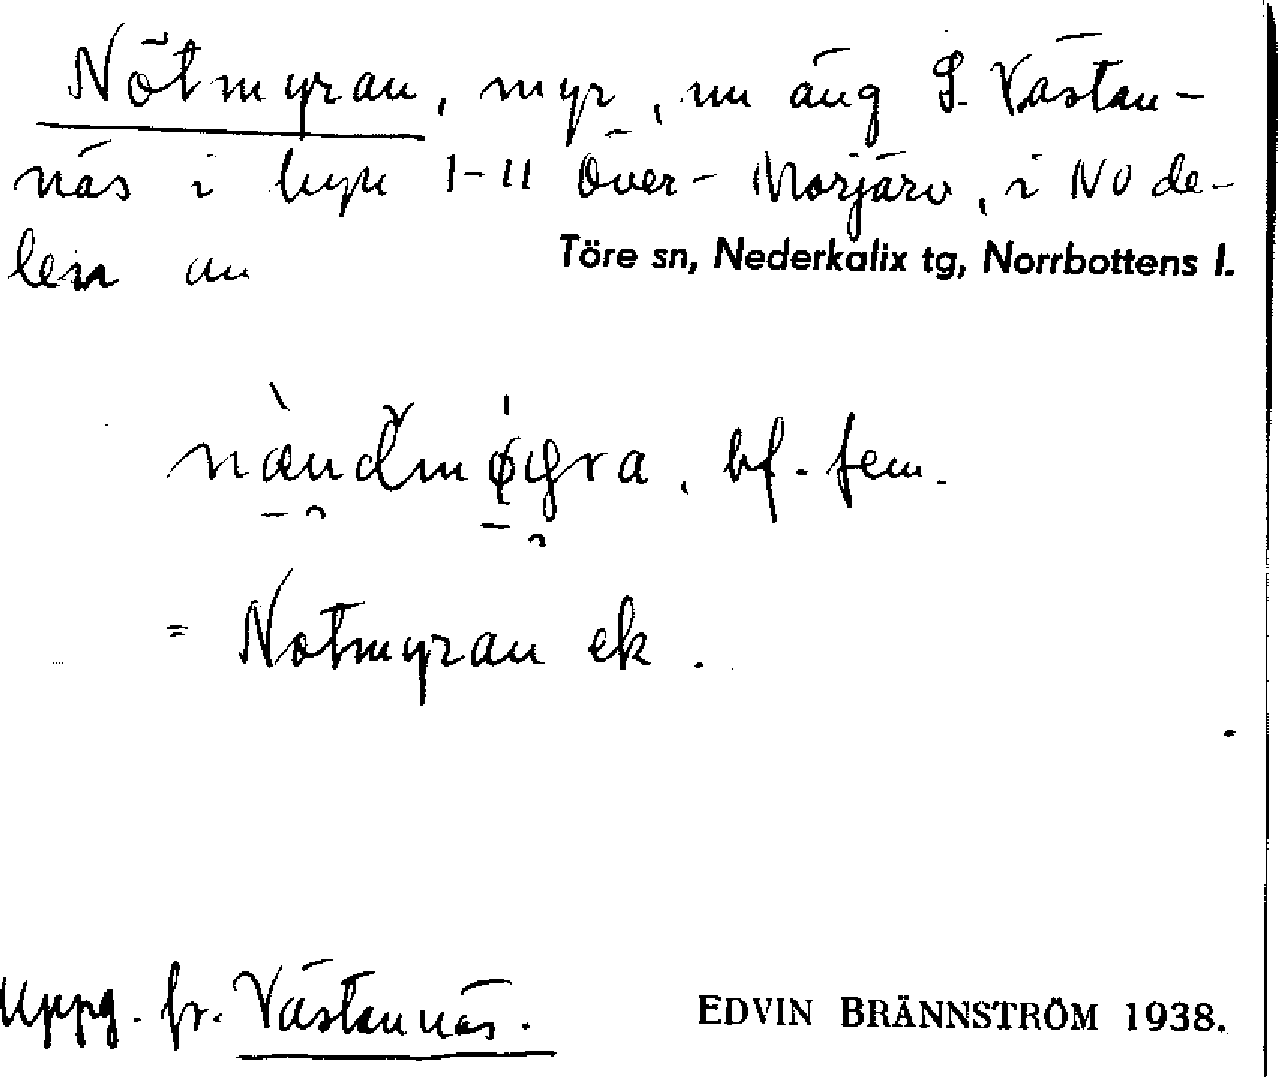 Nötmyran, myr, nu äng S. Västan-
näs i byn 1-11 Över-Morjärv, i NO de-
len av Töre sn, Nederkalix tg, Norrbottens l.
bf. fem.
= Nötmyran ek.
Uppg. fr. Västannäs.
EDVIN BRÄNNSTRÖM 1938.